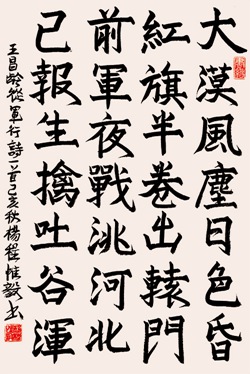 大漠風塵日色昏
紅旗半卷出轅門
前軍夜戰洮河北
已報生擒吐谷渾
王昌齡從軍行詩一首己亥秋楊程惟毅書